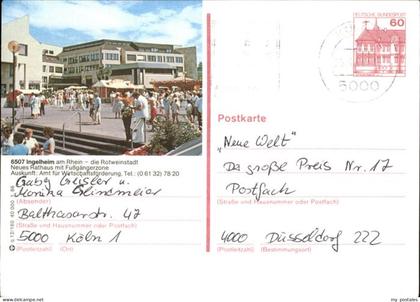 DEUTSCHE BUNDESPOST
60
5000
6507 Ingelheim am Rhein – die Rotweinstadt
Neues Rathaus mit Fußgängerzone
Auskunft: Amt für Wirtschaftsförderung, Tel.: (0 61 32) 78 20
Gaby u.
Monina
(Absender)
Balthasarstr. 47
(Straße und Hausnummer oder Postfach)
5000 Köln 1
(Postleitzahl) (Ort)
Postkarte
„Neue Welt"
Da große Preis Nr. 17
Postfach
(Straße und Hausnummer oder Postfach)
4000 Düsseldorf 222
(Postleitzahl) (Bestimmungsort)